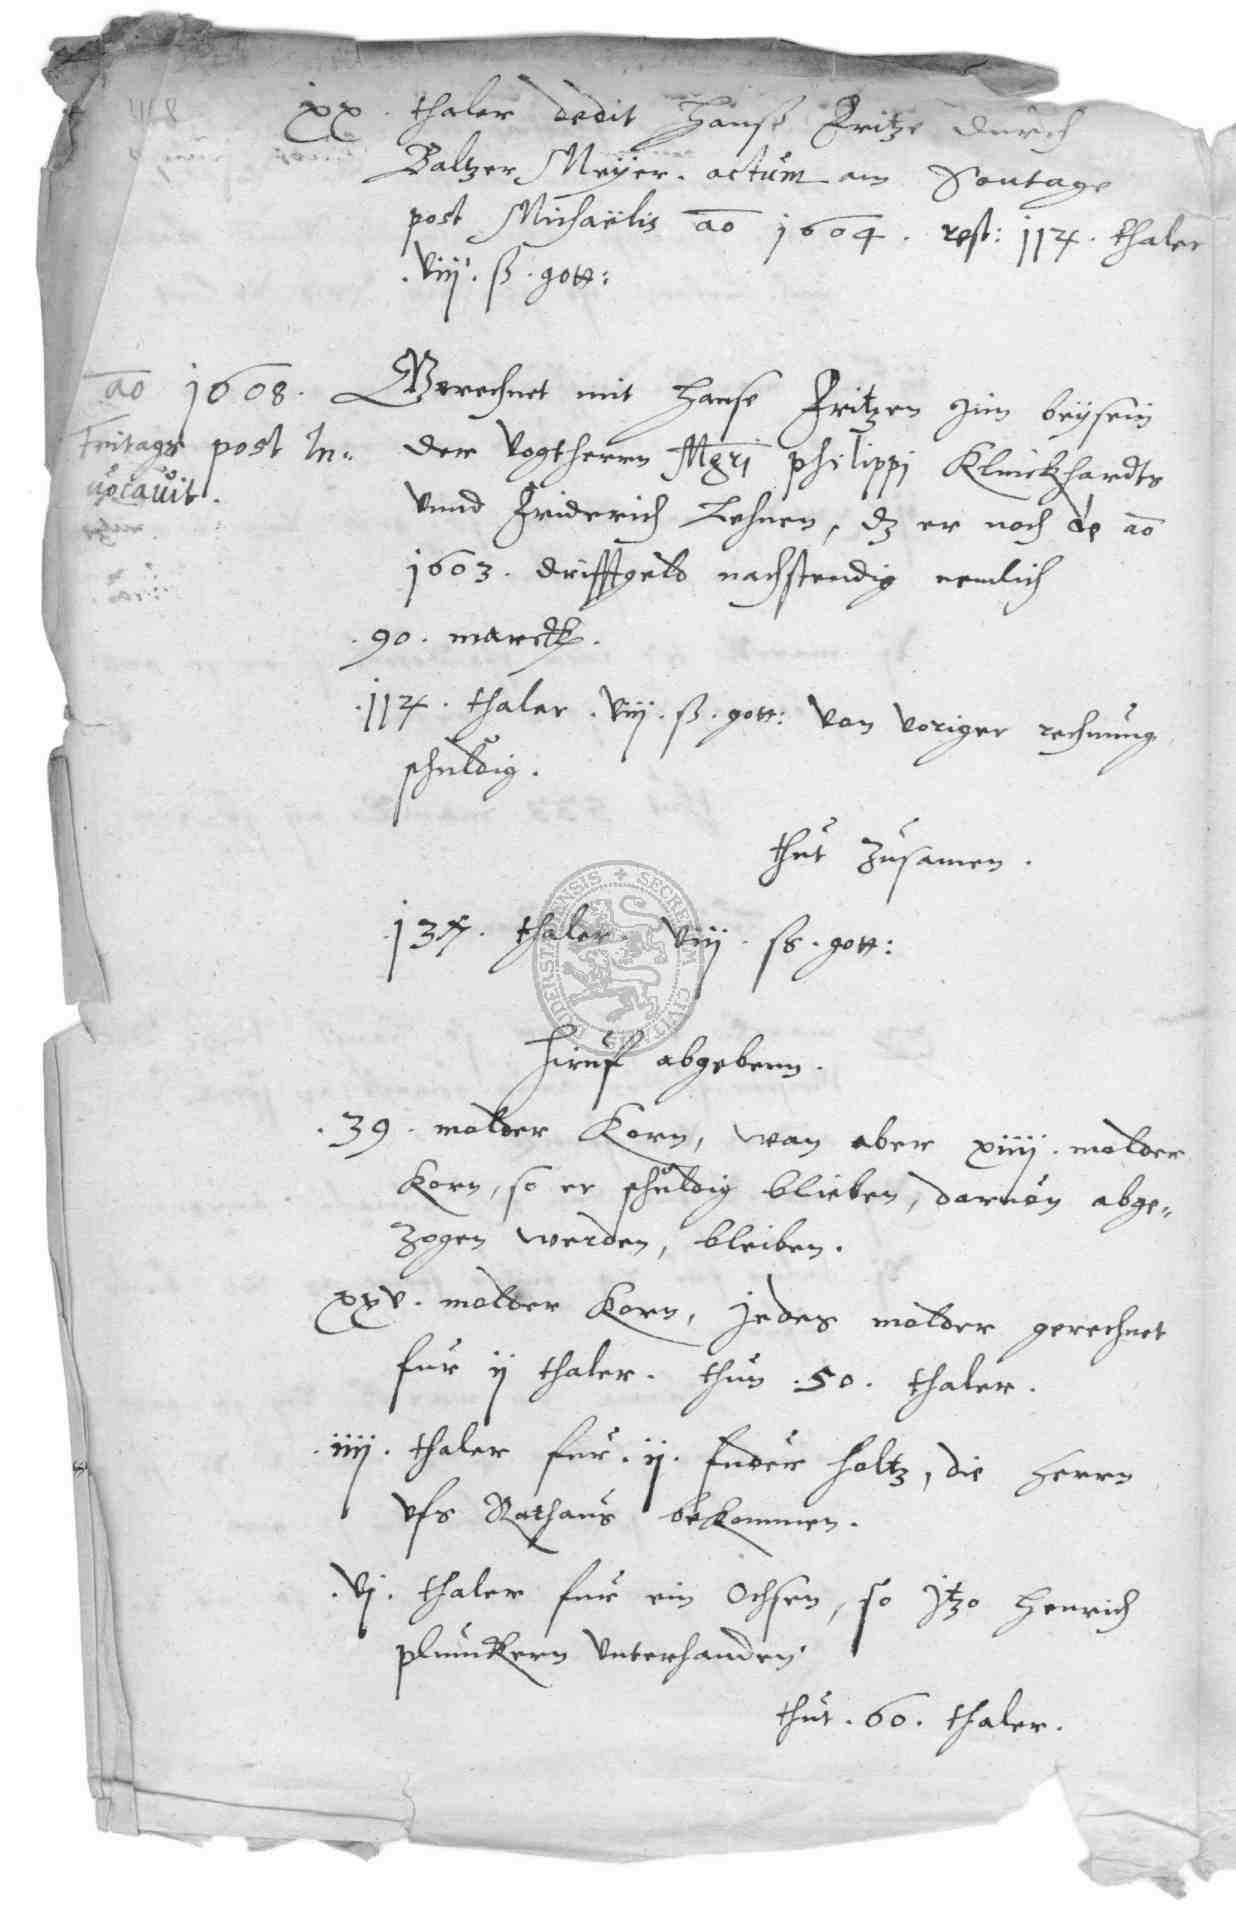 xx. thaler dedit Hanß Fritze durch
Baltzer Meÿer. actum am Sontage
post Michaëlis ao 1604. rest: 114. thaler
.viij. ß. gott:
ao 1608.
Freitags post In-
vocavit.
Gerechnet mit Hanse Fritzen Jim beÿsein
der vogtherrn Mgri philippi Kluickhardts
vnnd Friderich Lehnen, dz er noch de ao
1603. drifftgeld nachstendig nemlich
.90. marck.
.114. thaler .viij. ß. gott: von voriger rechnung
schuldig.
thut zusamen.
.137. thaler. viij. ß. gott:
Hiruf abgebenn.
.39. molder Korn, wan aber xiiij. molder
Korn, so er schuldig blieben, daruon abge-
zogen werden, bleiben.
xxv. molder Korn, jedes molder gerechnet
fur ij thaler. thun .50. thaler.
.iiij. thaler fur .ij. fuder holtz, die Herrn
vfs Rathaus bekommen.
.vj. thaler fur ein Ochsen, so jtzo Henrich
plunckern vnterhanden
thut .60. thaler.
SECRETUM CIVITATIS DUDERSTADENSIS